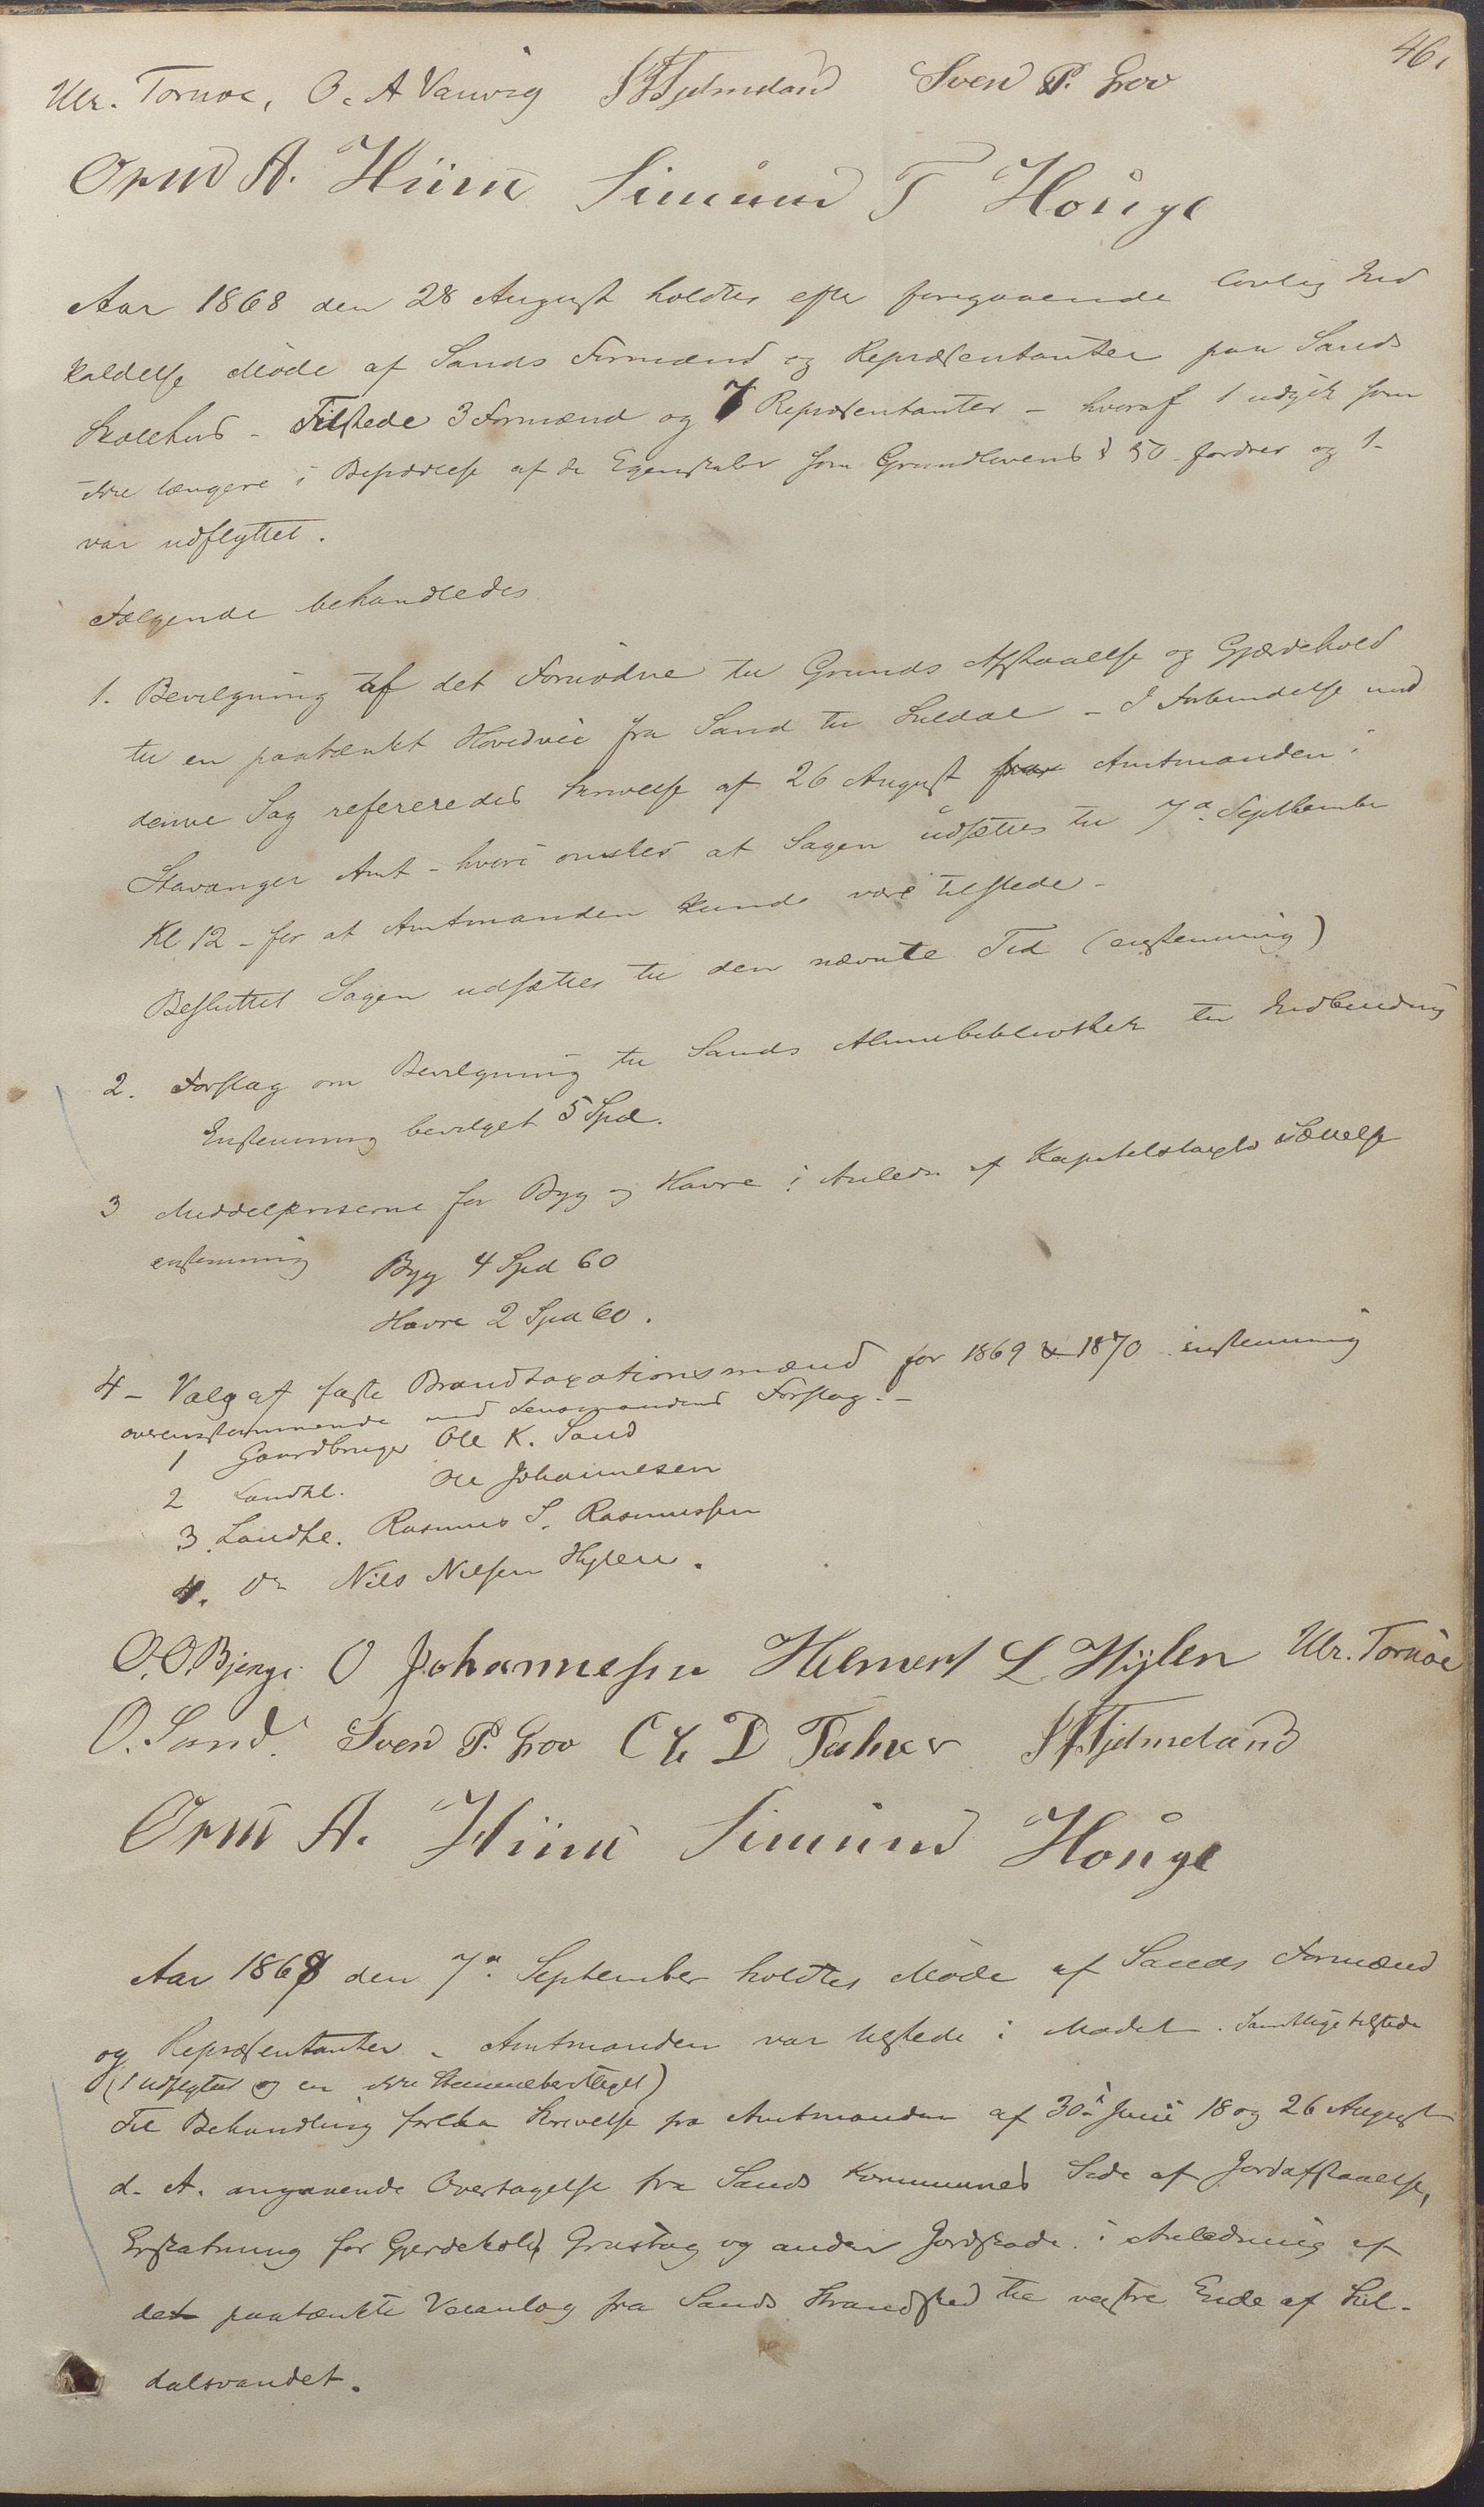 46.
Ulr. Tornøe, O. A Vanvig S T Tjelmeland Sven P. Grov
Orm A. Hiim Simund T Houge
Aar 1868 den 28 August holdtes efter foregaaende lovlig Ind
kaldelse Møde af Sands Formænd og Repræsentanter paa Sands
Skolehus - Tilstede 3 Formænd og 7 Repræsentanter - hvoraf 1 udgik som
ikke længere i Besiddelse af de Egenskaber som Grundlovens § 50 fordrer og 1
var udflyttet.
Følgende behandledes
1. Bevilgning af det Fornødne til Grunds Afstaaelse og Gjerdehold
til en paatænkt Hovedvei fra Sand til Suldal - I Forbindelse med
denne Sag refereredes Skrivelse af 26 August fra Amtmanden i
Stavanger Amt - hvori ønskes at Sagen udsættes til 7de September
Kl 12 - for at Amtmanden kunde være tilstede -
Besluttet Sagen udsættes til den nævnte Tid (enstemmig)
2. Forslag om Bevilgning til Sands Almuebibliothek til Indbinding
Enstemmig bevilget 5 Spd.
3 Middelpriserne for Byg og Havre i Anledn af Kapitelstaxts Sættelse
enstemmig Byg 4 Spd 60
Havre 2 Spd 60.
4 - Valg af faste Brandtaxationsmænd for 1869 & 1870 enstemmig
overensstemmende med Lensmandens Forslag. -
1 Gaardbruger Ole K. Sand
2 Landhl. Ole Johannesen
3. Landhl. Rasmus S. Rasmussen
4. Do Nils Nilsen Hylen.
O. O. Bjerge O Johannesen Helmert L Hylen Ulr. Tornøe
O. Sand. Sven P. Grov Ch D Fahner S T Tjelmeland
Orm A. Hiim Simund Houge
Aar 1868 den 7de September holdtes Møde af Sands Formænd
og Repræsentanter - Amtmanden var tilstede i Mødet. Samtlige tilstede
(1 udflyttet og en ikke Stemmeberettiget)
Til Behandling forelaa Skrivelse fra Amtmanden af 30te Juni 18 og 26 August
d. A. angaaende Overtagelse fra Sands Kommunes Side af Jordafstaaelse,
Erstatning for Gjerdehold, Grustag og anden Jordskade i Anledning af
det paatænkte Veianlæg fra Sands Strandsted til vestre Ende af Sul-
dalsvandet.